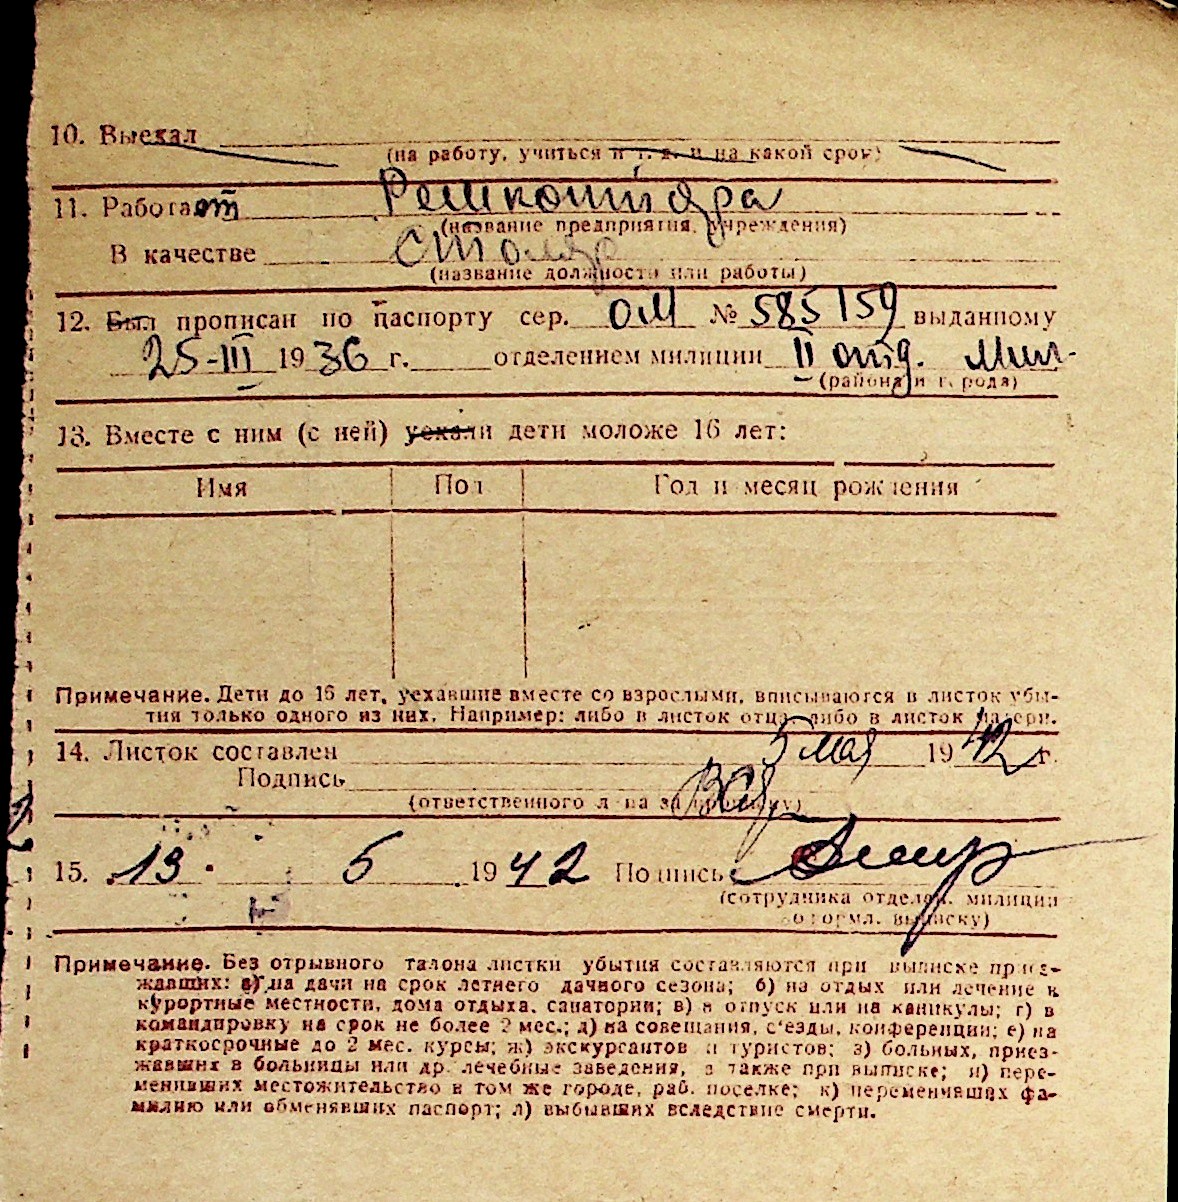 10. Выехал
(на работу, учиться и т. д. и на какой срок)
11. Работает Решкоштяра
(название предприятия, учреждения)
В качестве Столяр
(название должности или работы)
12. Был прописан по паспорту сер. ОМ № 585159 выданному
25-III 1936 г. отделением милиции II отд. Мил.
(района и города)
13. Вместе с ним (с ней) уехали дети моложе 16 лет:
Имя Пол Год и месяц рождения
Примечание. Дети до 16 лет, уехавшие вместе со взрослыми, вписываются в листок убы-
тия только одного из них. Например: либо в листок отца, либо в листок матери.
14. Листок составлен 5 мая 1942 г.
Подпись
(ответственного л-ца за прописку)
15. 13. 5 1942 Подпись
(сотрудника отделен. милиции
оформл. выписку)
Примечание. Без отрывного талона листки убытия составляются при выписке приез-
жавших: а) на дачи на срок летнего дачного сезона; б) на отдых или лечение в
курортные местности, дома отдыха, санатории; в) в отпуск или на каникулы; г) в
командировку на срок не более 2 мес.; д) на совещания, с'езды, конференции; е) на
краткосрочные до 2 мес. курсы; ж) экскурсантов и туристов; з) больных, приез-
жавших в больницы или др. лечебные заведения, а также при выписке; и) пере-
менивших местожительство в том же городе, раб. поселке; к) переменивших фа-
милию или обменявших паспорт; л) выбывших вследствие смерти.